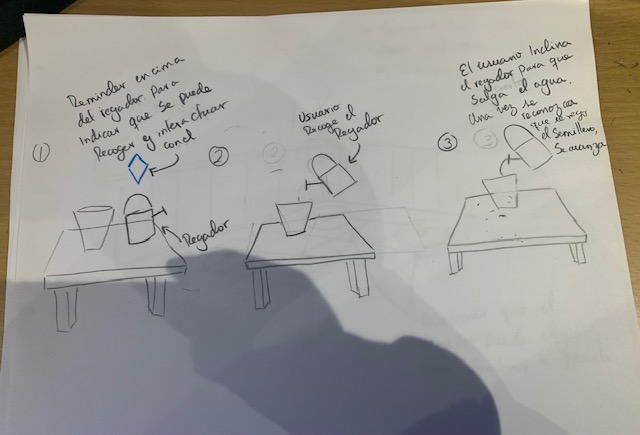 Reminder encima
del regador para
Indicar que se puede
Recoger y interactuar
con el
1
Regador
2
Usuario
Recoge el
Regador
El usuario Inclina
el regador para que
Salga el agua.
Una vez se
reconozca
que se rego
el Semillero,
Se avanza
3